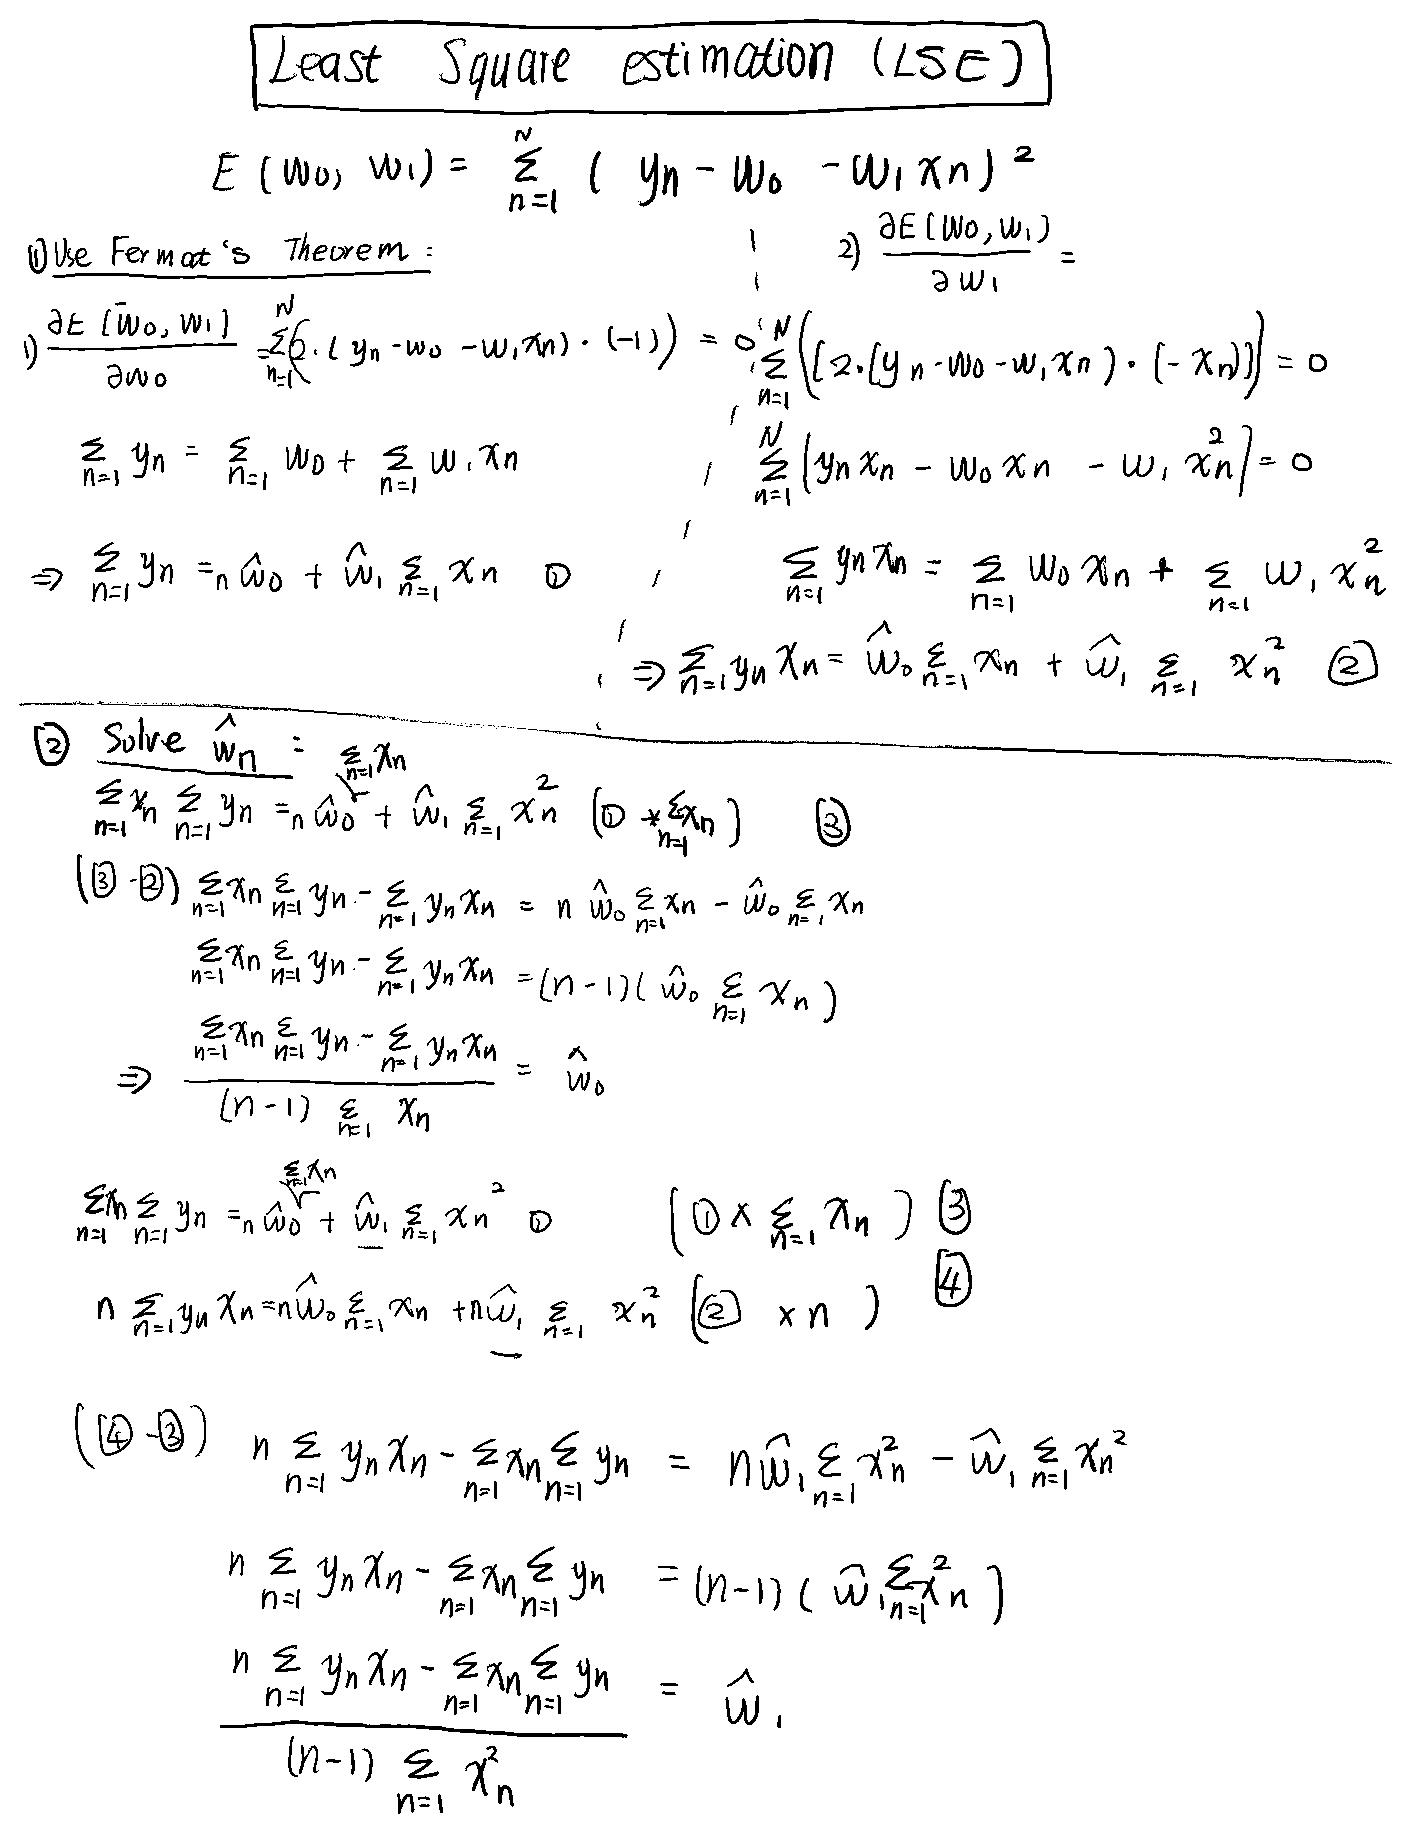 Least Square estimation (LSE)
E (w₀, w₁) = Σₙ₌₁ᴺ ( yₙ - w₀ - w₁xₙ)²
① Use Fermat's Theorem :
1) ∂E (w₀, w₁) / ∂w₀ = Σₙ₌₁ᴺ (2·(yₙ - w₀ - w₁xₙ)·(-1)) = 0
Σₙ₌₁ yₙ = Σₙ₌₁ w₀ + Σₙ₌₁ w₁xₙ
⇒ Σₙ₌₁ yₙ = n ŵ₀ + ŵ₁ Σₙ₌₁ xₙ ①
2) ∂E (w₀, w₁) / ∂w₁ =
Σₙ₌₁ᴺ ((2·(yₙ - w₀ - w₁xₙ)·(-xₙ))) = 0
Σₙ₌₁ᴺ (yₙxₙ - w₀xₙ - w₁xₙ²) = 0
Σₙ₌₁ yₙxₙ = Σₙ₌₁ w₀xₙ + Σₙ₌₁ w₁xₙ²
⇒ Σₙ₌₁ yₙxₙ = ŵ₀ Σₙ₌₁ xₙ + ŵ₁ Σₙ₌₁ xₙ² ②
② Solve ŵₙ :
Σₙ₌₁ xₙ Σₙ₌₁ yₙ = n ŵ₀ Σₙ₌₁ xₙ + ŵ₁ Σₙ₌₁ xₙ² (① * Σₙ₌₁ xₙ) ③
(③ - ②) Σₙ₌₁ xₙ Σₙ₌₁ yₙ - Σₙ₌₁ yₙxₙ = n ŵ₀ Σₙ₌₁ xₙ - ŵ₀ Σₙ₌₁ xₙ
Σₙ₌₁ xₙ Σₙ₌₁ yₙ - Σₙ₌₁ yₙxₙ = (n-1)( ŵ₀ Σₙ₌₁ xₙ )
⇒ Σₙ₌₁ xₙ Σₙ₌₁ yₙ - Σₙ₌₁ yₙxₙ / (n-1) Σₙ₌₁ xₙ = ŵ₀
Σₙ₌₁ xₙ Σₙ₌₁ yₙ = n ŵ₀ Σₙ₌₁ xₙ + ŵ₁ Σₙ₌₁ xₙ² ① (① × Σₙ₌₁ xₙ ) ③
n Σₙ₌₁ yₙxₙ = n ŵ₀ Σₙ₌₁ xₙ + n ŵ₁ Σₙ₌₁ xₙ² (② × n ) ④
(④ - ③) n Σₙ₌₁ yₙxₙ - Σₙ₌₁ xₙ Σₙ₌₁ yₙ = n ŵ₁ Σₙ₌₁ xₙ² - ŵ₁ Σₙ₌₁ xₙ²
n Σₙ₌₁ yₙxₙ - Σₙ₌₁ xₙ Σₙ₌₁ yₙ = (n-1)( ŵ₁ Σₙ₌₁ xₙ² )
n Σₙ₌₁ yₙxₙ - Σₙ₌₁ xₙ Σₙ₌₁ yₙ / (n-1) Σₙ₌₁ xₙ² = ŵ₁